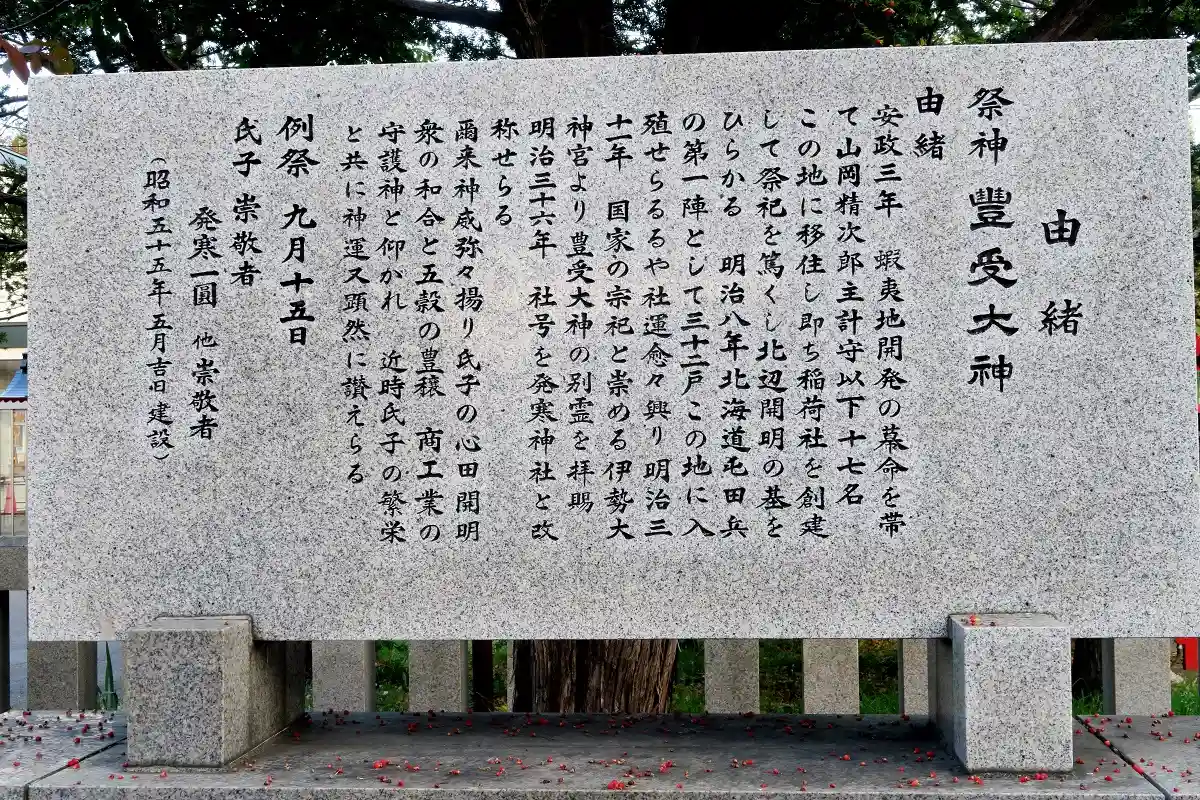 由緒
祭神 豐受大神
由緒
安政三年 蝦夷地開発の幕命を帯
て山岡精次郎主計守以下十七名
この地に移住し即ち稲荷社を創建
して祭祀を篤くし北辺開明の基を
ひらかる 明治八年北海道屯田兵
の第一陣として三十二戸この地に入
殖せらるるや社運愈々興り明治三
十一年 国家の宗祀と崇める伊勢大
神宮より豊受大神の別霊を拝賜
明治三十六年 社号を発寒神社と改
称せらる
爾来神威弥々揚り氏子の心田開明
衆の和合と五穀の豊穣 商工業の
守護神と仰がれ 近時氏子の繁栄
と共に神運又顕然に讃えらる
例祭 九月十五日
氏子 崇敬者
発寒一圓 他崇敬者
（昭和五十五年五月吉日建設）